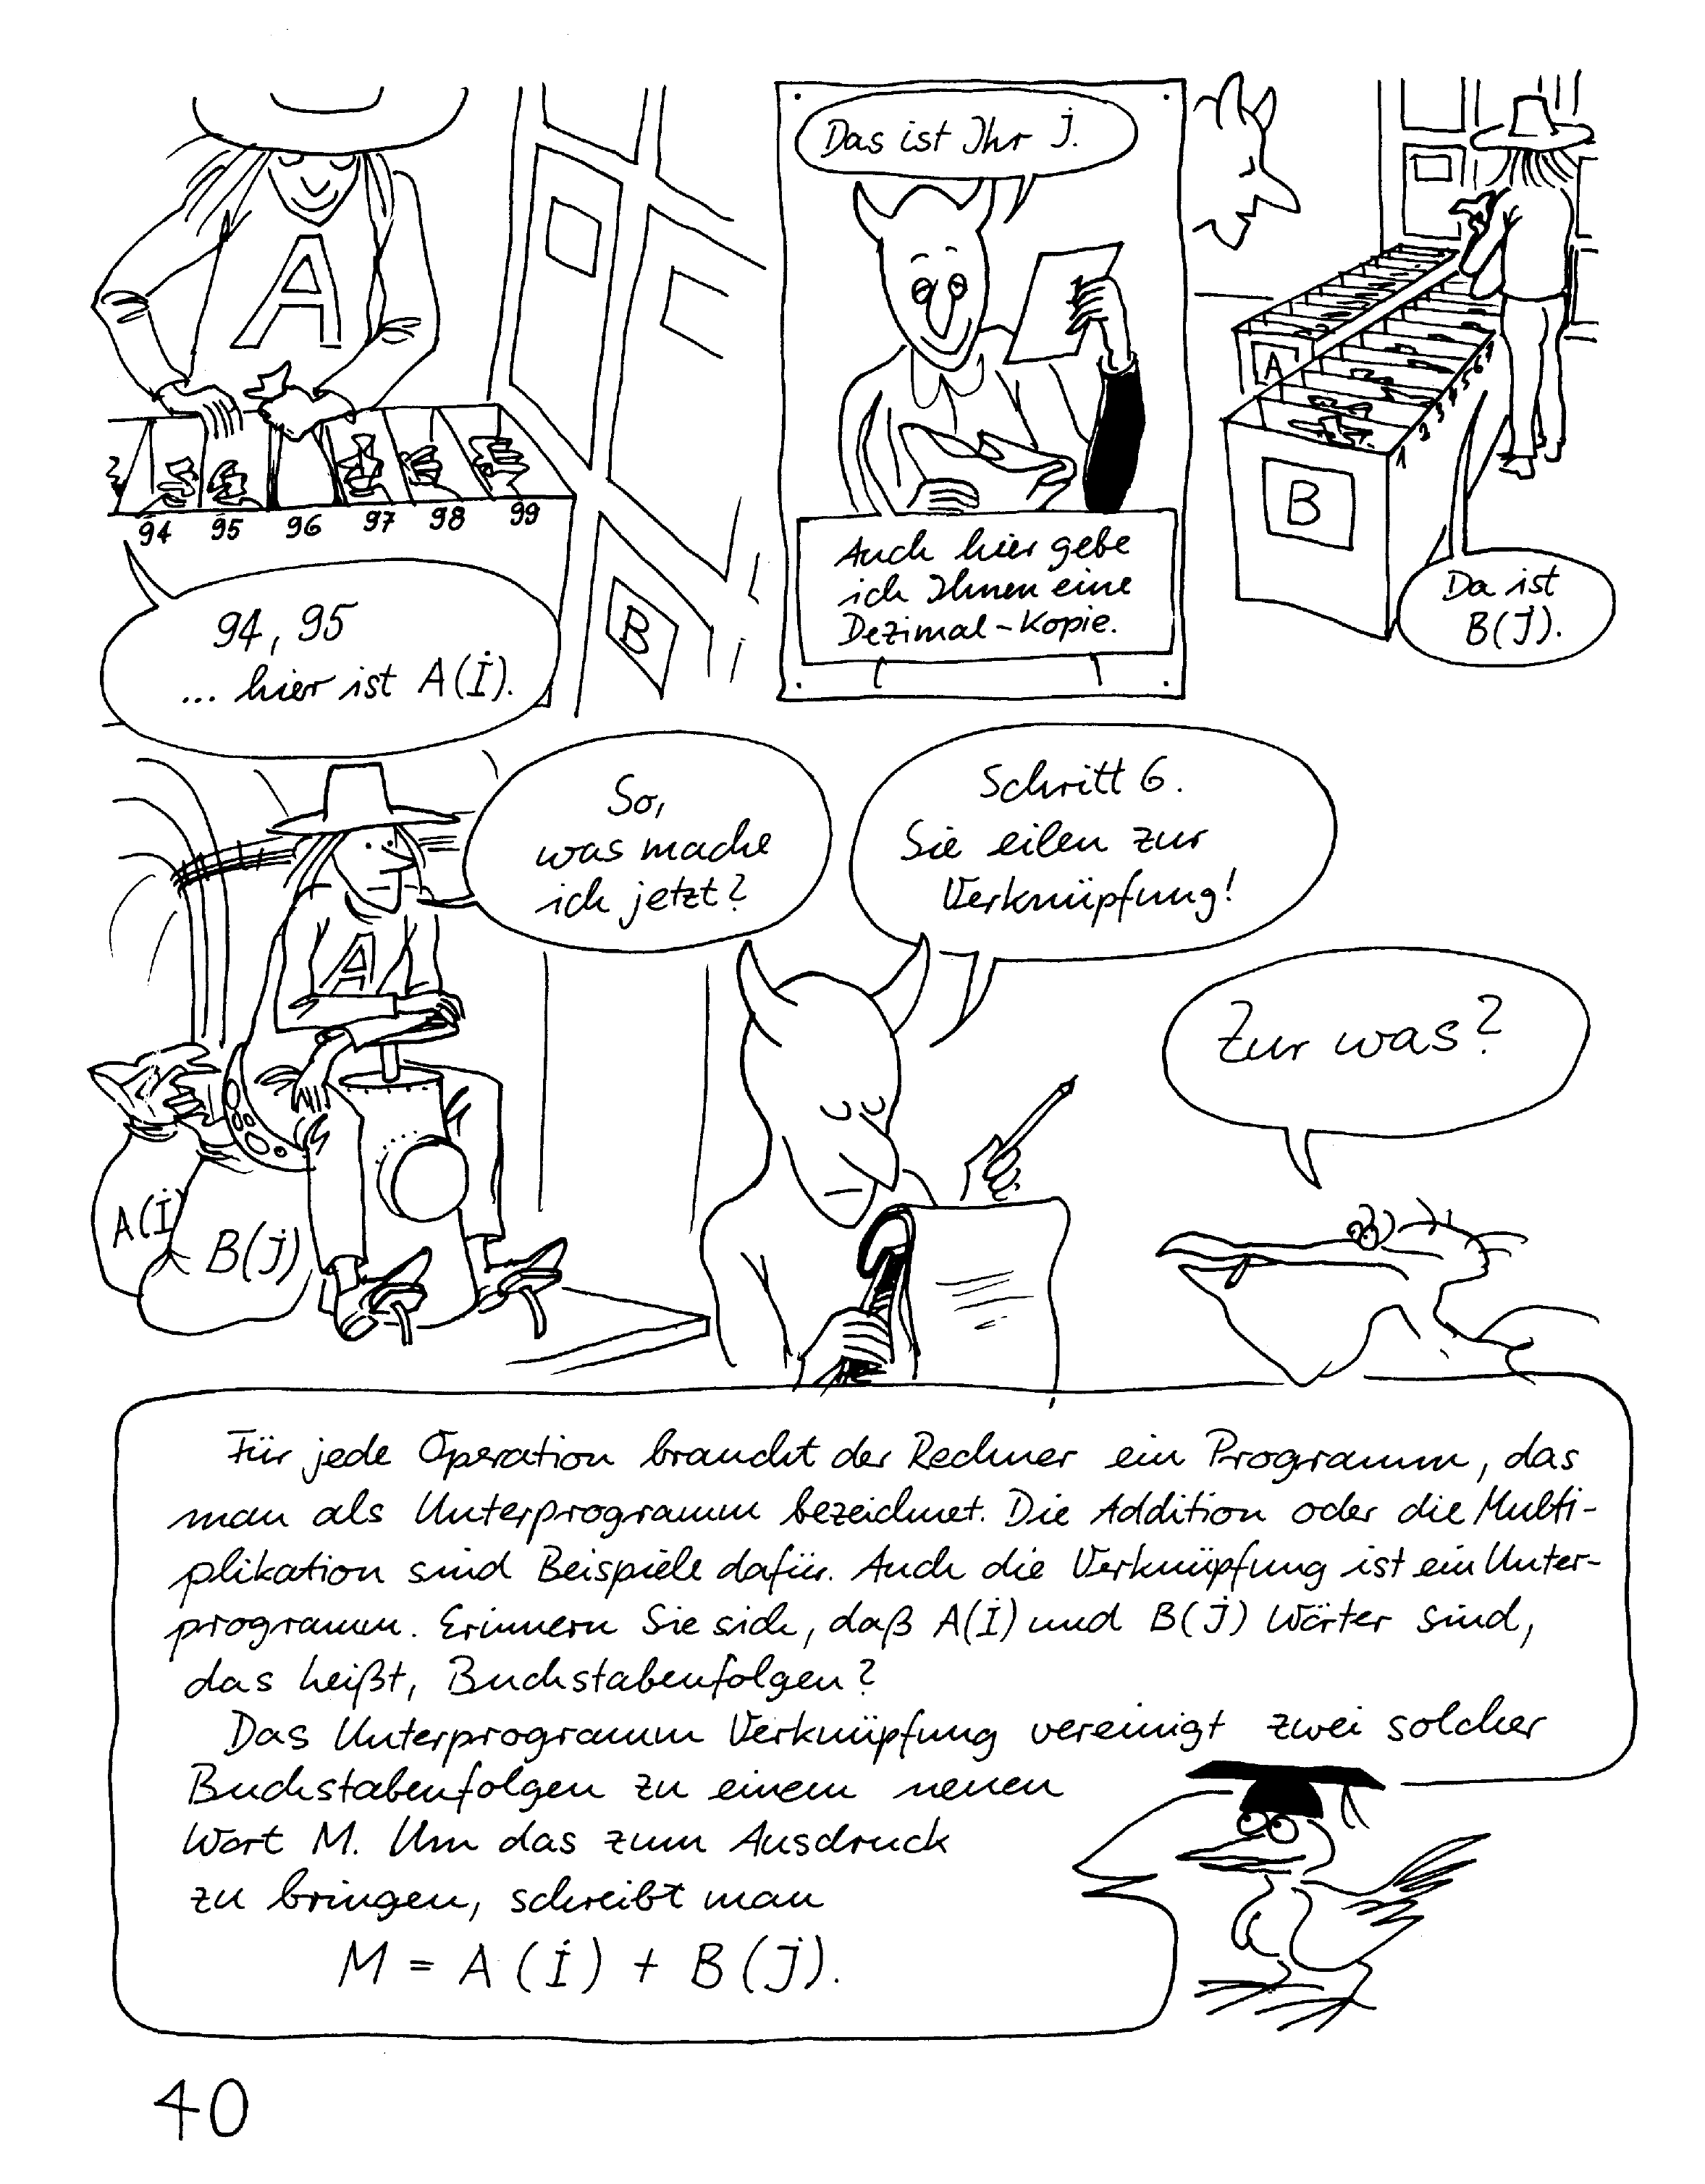 A
94 95 96 97 98 99
94, 95
... hier ist A(i).
B
Das ist Ihr j.
Auch hier gebe
ich Ihnen eine
Dezimal-Kopie.
A
B
1 2 3 4 5 6 7
Da ist
B(j).
A
A(i)
B(j)
So,
was mache
ich jetzt?
Schritt 6.
Sie eilen zur
Verknüpfung!
Zur was?
Für jede Operation braucht der Rechner ein Programm, das
man als Unterprogramm bezeichnet. Die Addition oder die Multi-
plikation sind Beispiele dafür. Auch die Verknüpfung ist ein Unter-
programm. Erinnern Sie sich, daß A(i) und B(j) Wörter sind,
das heißt, Buchstabenfolgen?
Das Unterprogramm Verknüpfung vereinigt zwei solcher
Buchstabenfolgen zu einem neuen
Wort M. Um das zum Ausdruck
zu bringen, schreibt man
M = A(i) + B(j).
40